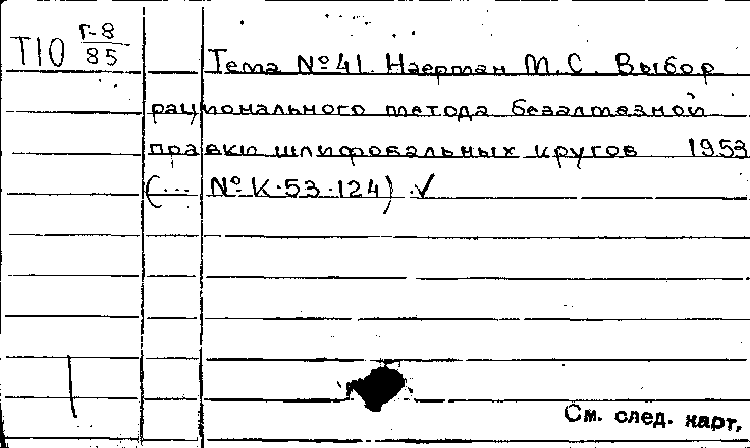 Т10 Г-8/85
Тема №41. Наерман М.С. Выбор
рационального метода безалмазной
правки шлифовальных кругов 1953
(... № К.53.124) ✓
См. след. карт.